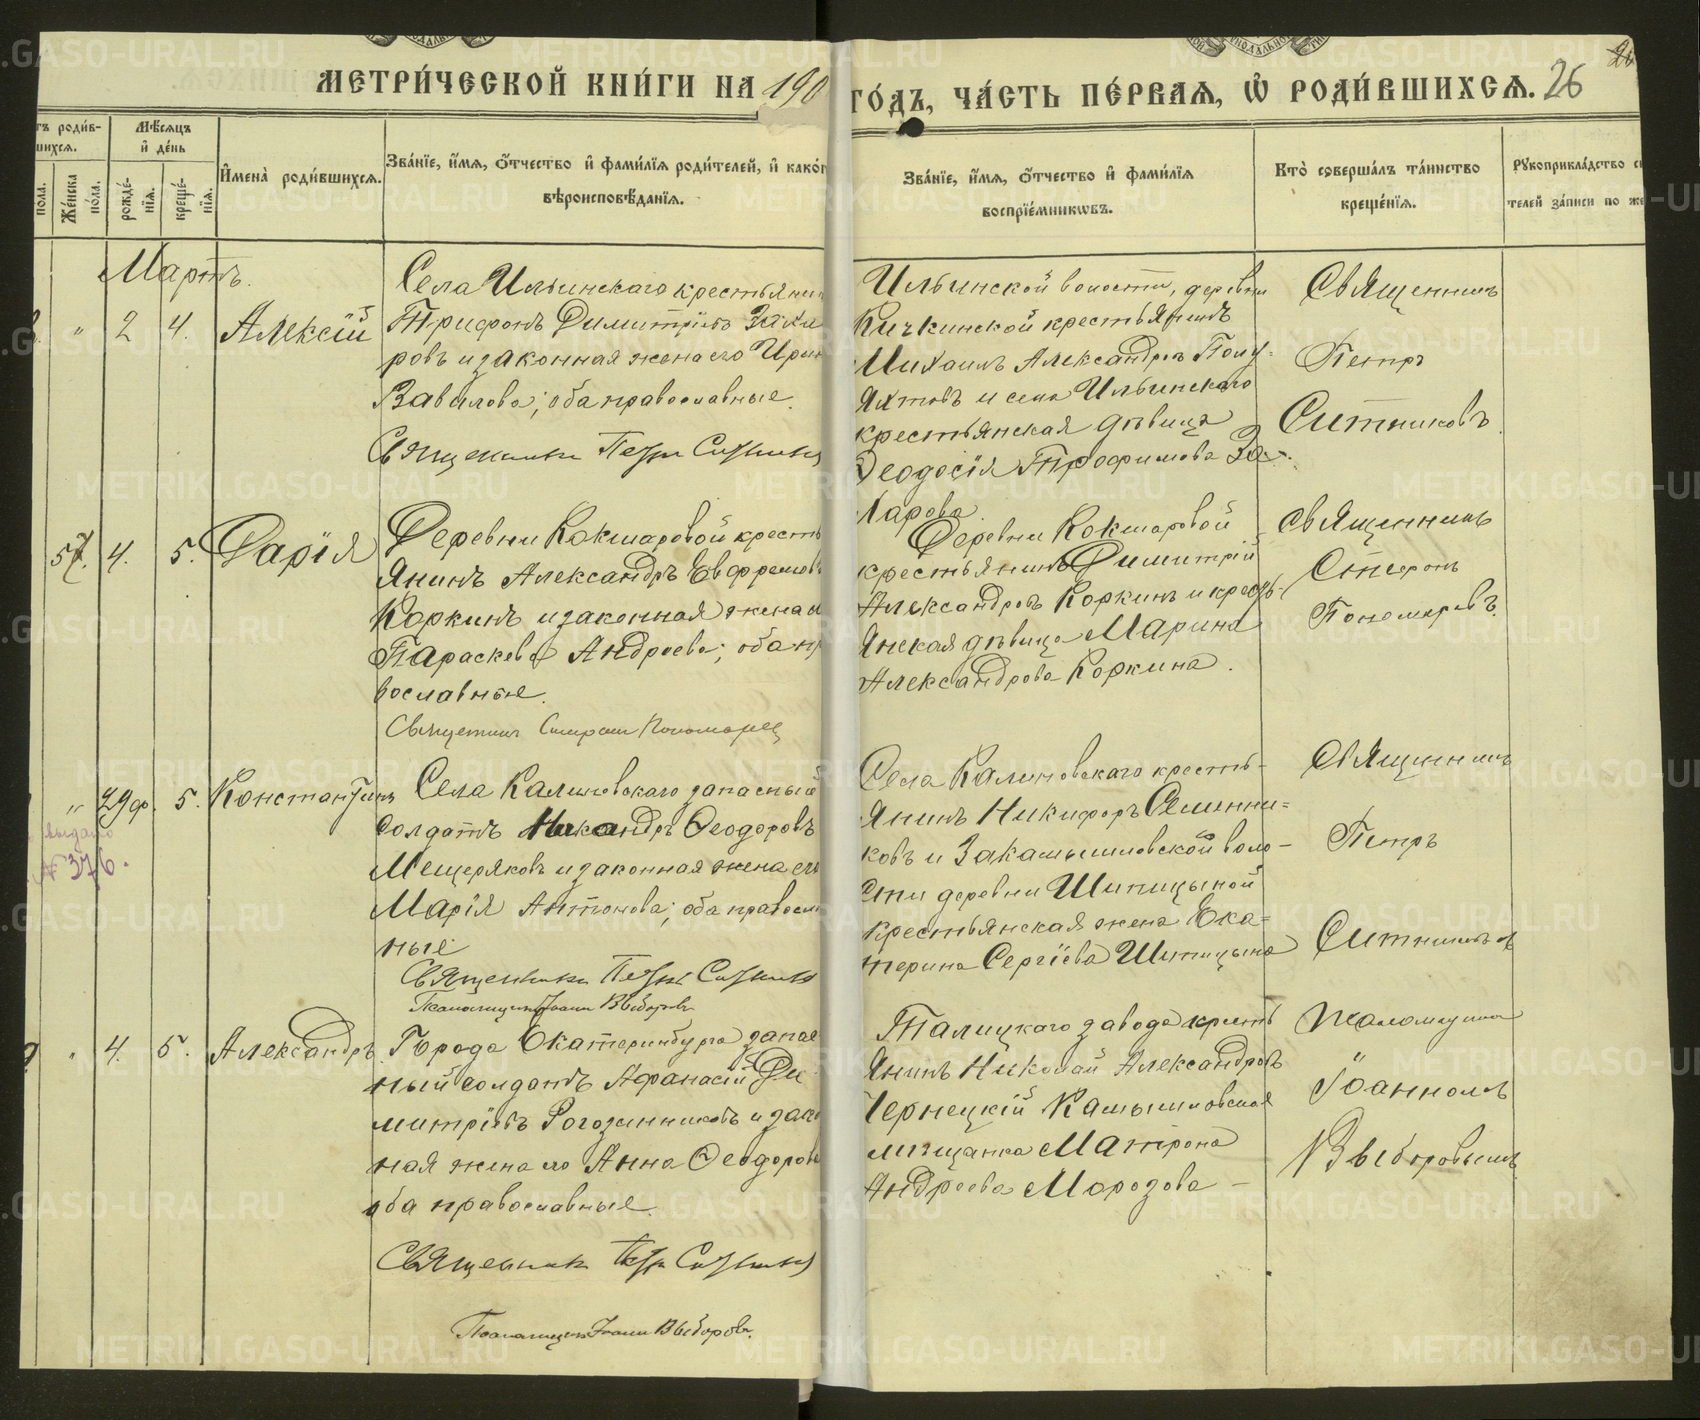 МЕТРИ́ЧЕСКОЙ КНИ́ГИ НА 190
ГО́ДЪ, ЧА́СТЬ ПЕ́РВАЯ, Ѡ РОДИ́ВШИХСЯ. 26
родив-
шихся.
Мѣсяцъ
и день
пола.
Женска
пола.
рожде-
нія.
креще-
нія.
Имена родившихся.
Званіе, имя, отчество и фамилія родителей, и како
вѣроисповѣданія.
Званіе, имя, отчество и фамилія
воспріемниковъ.
Кто совершалъ таинство
крещенія.
Рукоприкладство
телей записи по же
Мартъ.
" 2 4. Алексій
Села Ильинскаго крестьянин
Трифонъ Димитріевъ Заха
ровъ и законная жена его Ирин
Вавилова; оба православные.
Священникъ Петръ Ситник
Ильинской волости, деревни
Кичкинской крестьянинъ
Михаилъ Александровъ Полу-
яхтовъ и села Ильинскаго
крестьянская дѣвица
Ѳеодосія Трофимова За-
харова.
Священникъ
Петръ
Ситниковъ.
57. 4. 5. Дарія
Деревни Кокшаровой кресть
янинъ Александръ Евфремов
Коркинъ и законная жена е
Параскева Андреева; оба пр
вославные.
Священникъ Стефанъ Пономарев
Деревни Кокшаровой
крестьянинъ Димитрій
Александровъ Коркинъ и кресть-
янская дѣвица Марина
Александрова Коркина.
Священникъ
Стефанъ
Пономаревъ.
" 29 ф. 5. Константинъ
выдано
№ 376.
Села Калиновскаго запасный
солдатъ Никандръ Ѳеодоровъ
Мещеряковъ и законная жена его
Марія Антонова; оба правосл
ные
Священникъ Петръ Ситник
Псаломщикъ Іоаннъ Выборовъ
Села Калиновскаго кресть-
янинъ Никифоръ
ковъ и Закамышловской воло-
сти деревни Шипицыной
крестьянская жена Ека-
терина Сергіева Шипицына
Священникъ
Петръ
Ситниковъ
" 4. 5. Александръ
Города Екатеринбурга запас
ный солдатъ Афанасій Ди
митріевъ Рогозинниковъ и закон
ная жена его Анна Ѳеодоров
оба православные.
Священникъ Петръ Ситник
Псаломщикъ Іоаннъ Выборовъ.
Талицкаго завода кресть
янинъ Николай Александровъ
Чернецкій Камышловская
мѣщанка Матрона
Андреева Морозова
Іоанномъ
Выборовымъ
METRIKI.GASO-URAL.RU